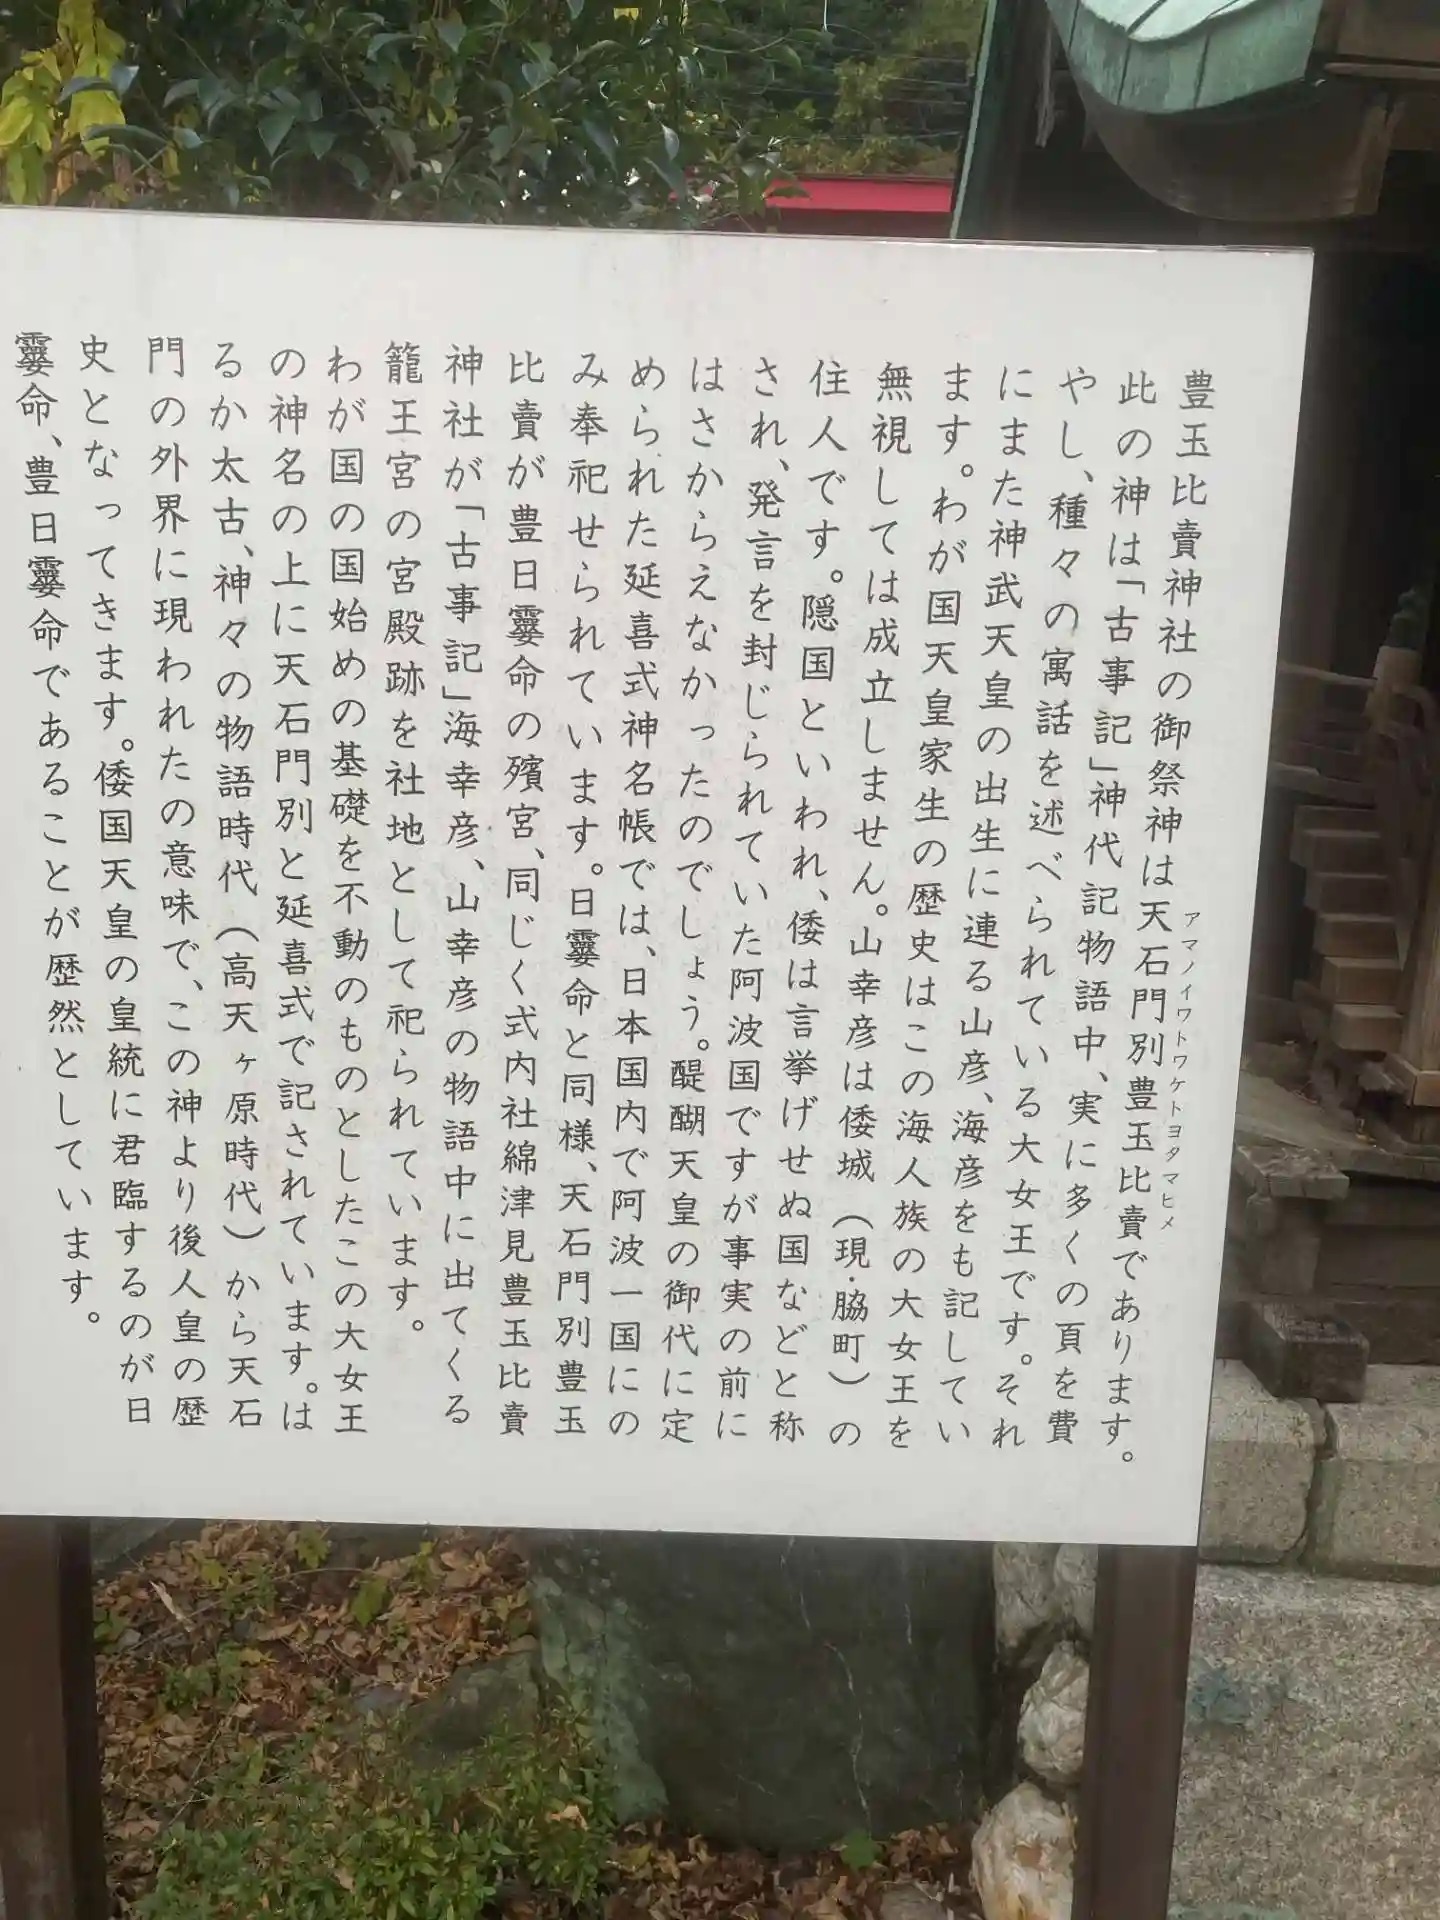 豊玉比賣神社の御祭神は天石門別豊玉比賣であります。
アマノイワトワケトヨタマヒメ
此の神は「古事記」神代記物語中、実に多くの頁を費
やし、種々の寓話を述べられている大女王です。それ
にまた神武天皇の出生に連る山彦、海彦をも記してい
ます。わが国天皇家生の歴史はこの海人族の大女王を
無視しては成立しません。山幸彦は倭城（現・脇町）の
住人です。隠国といわれ、倭は言挙げせぬ国などと称
され、発言を封じられていた阿波国ですが事実の前に
はさからえなかったのでしょう。醍醐天皇の御代に定
められた延喜式神名帳では、日本国内で阿波一国にの
み奉祀せられています。日霎命と同様、天石門別豊玉
比賣が豊日霎命の殯宮、同じく式内社綿津見豊玉比賣
神社が「古事記」海幸彦、山幸彦の物語中に出てくる
籠王宮の宮殿跡を社地として祀られています。
わが国の国始めの基礎を不動のものとしたこの大女王
の神名の上に天石門別と延喜式で記されています。は
るか太古、神々の物語時代（高天ヶ原時代）から天石
門の外界に現われたの意味で、この神より後人皇の歴
史となってきます。倭国天皇の皇統に君臨するのが日
霎命、豊日霎命であることが歴然としています。